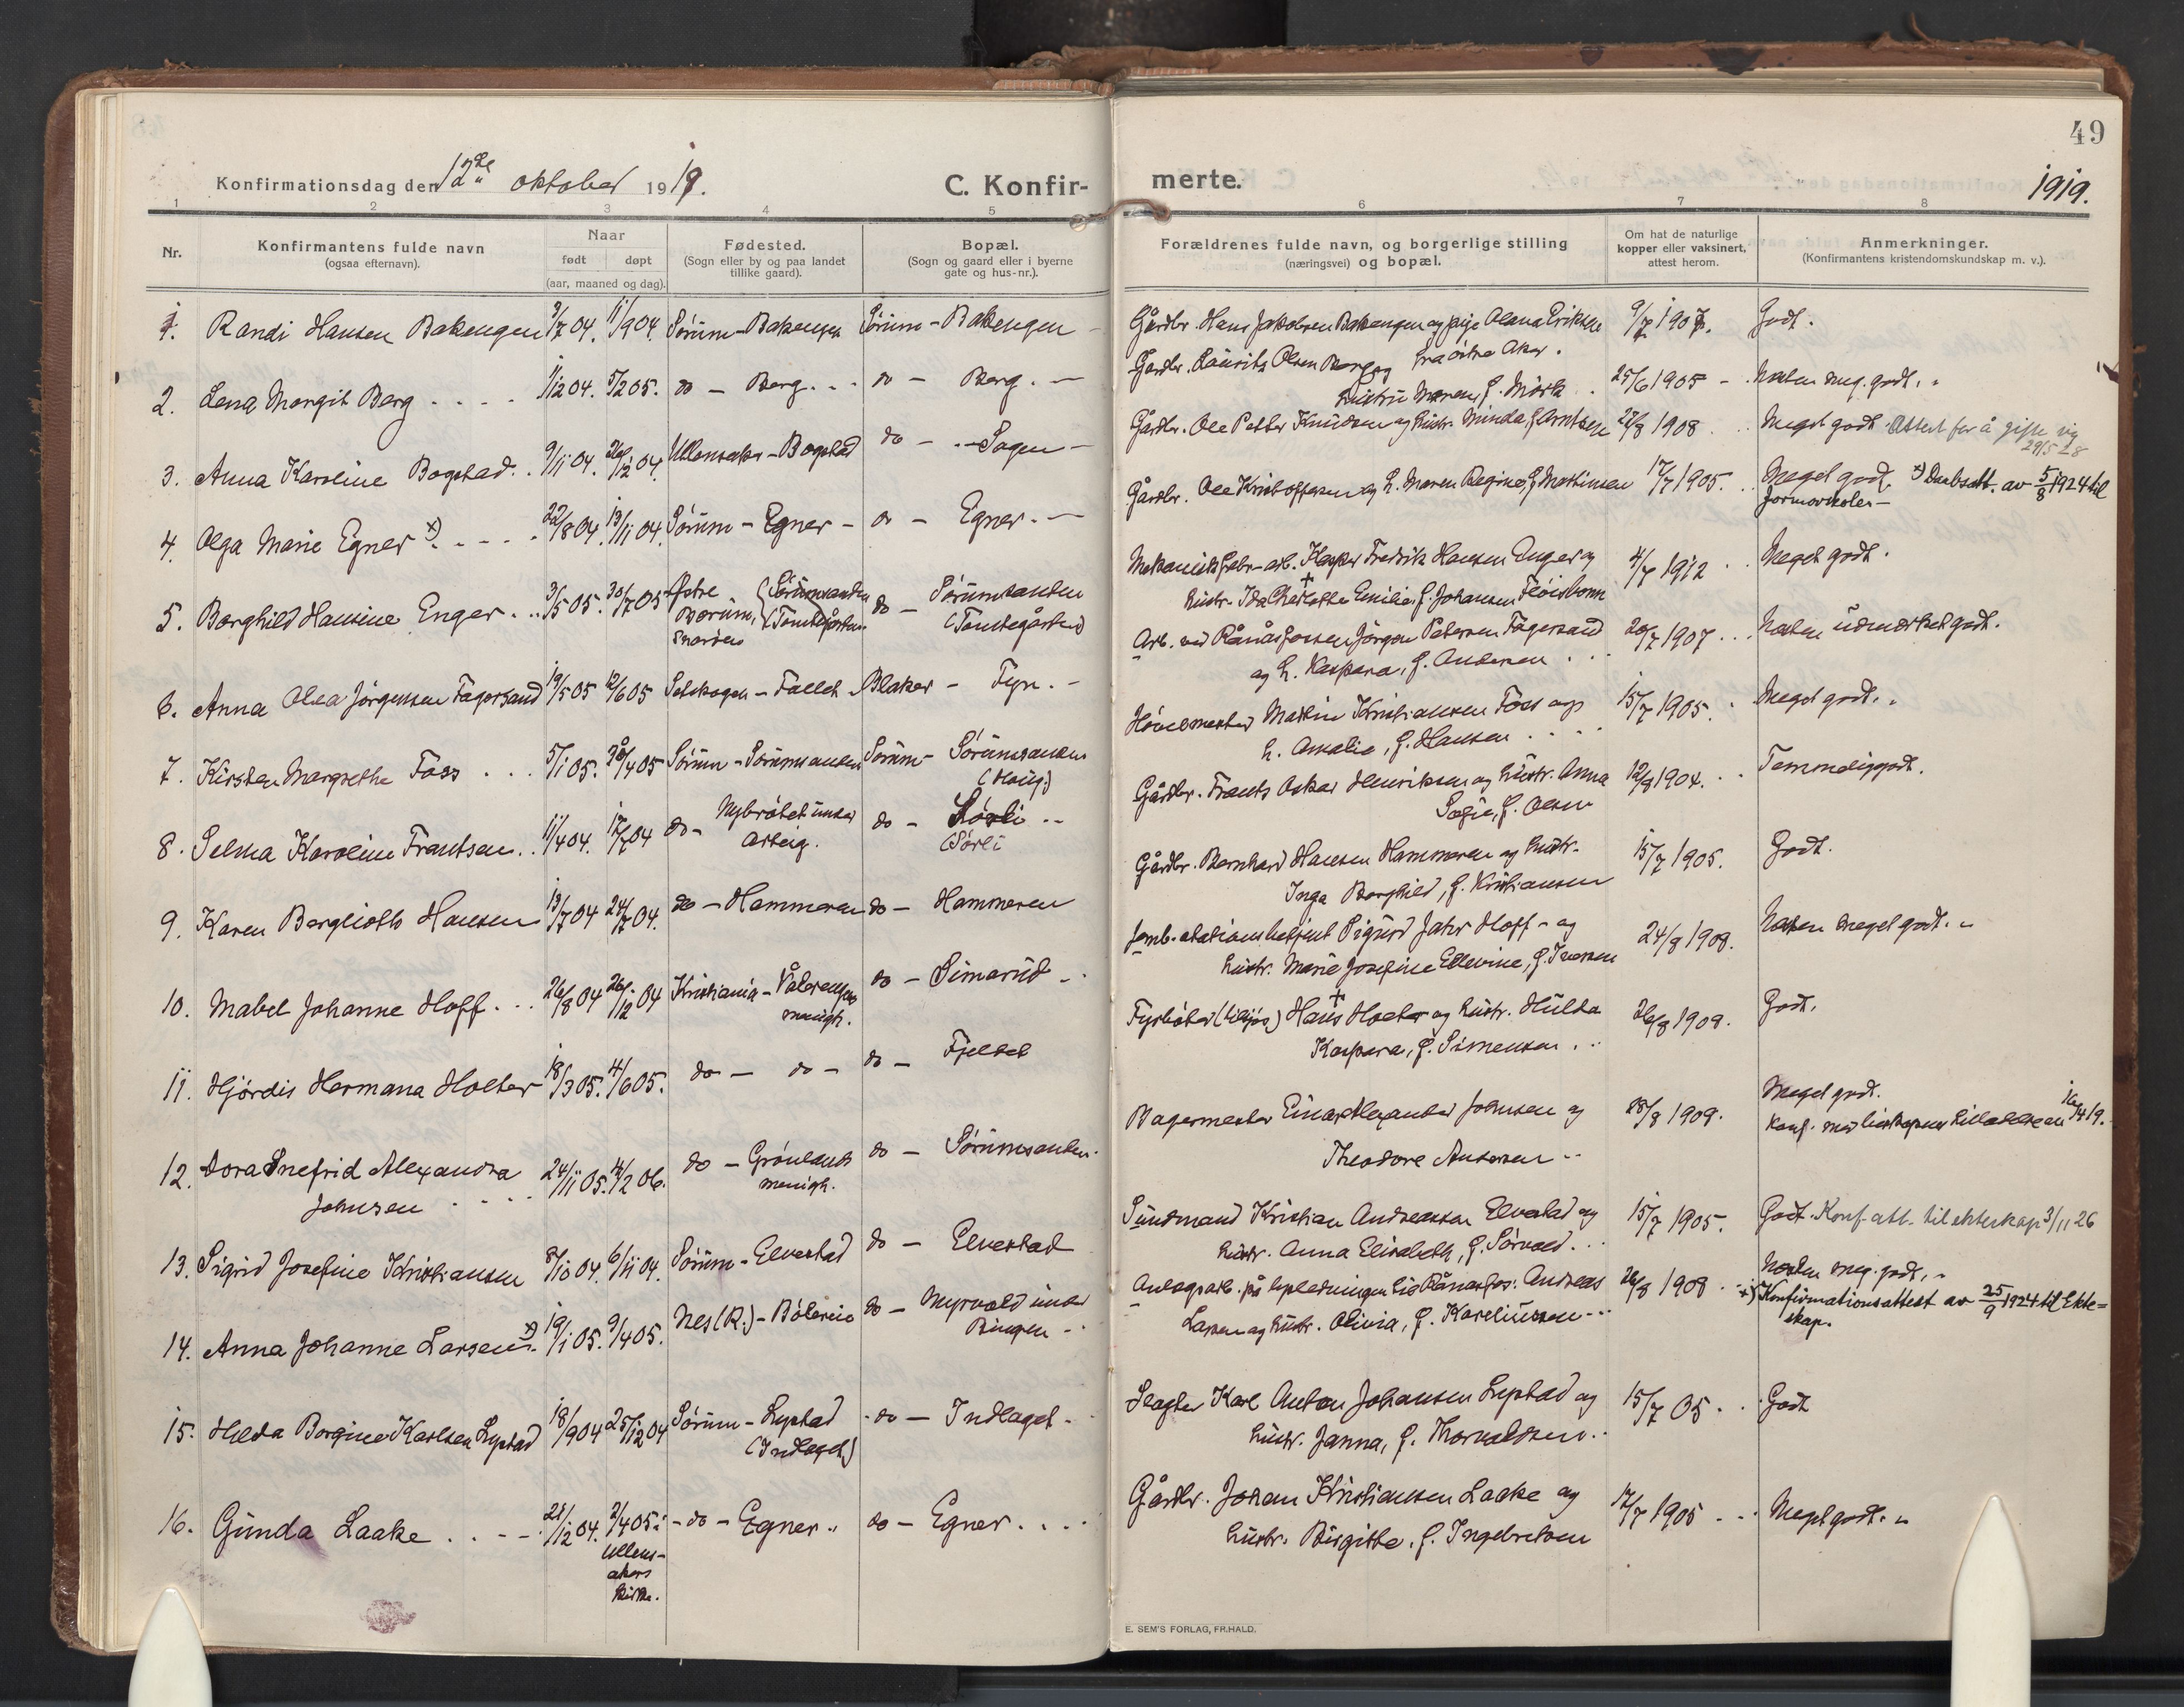 49
Konfirmationsdag den 12te oktober 1919.
C. Konfir- merte.
1919.
1 2 3 4 5 6 7 8
Nr.
Konfirmantens fulde navn
(ogsaa efternavn).
Naar
født døpt
(aar, maaned og dag).
Fødested.
(Sogn eller by og paa landet
tillike gaard).
Bopæl.
(Sogn og gaard eller i byerne
gate og hus-nr.).
Forældrenes fulde navn, og borgerlige stilling
(næringsvei) og bopæl.
Om hat de naturlige
kopper eller vaksinert,
attest herom.
Anmerkninger.
(Konfirmantens kristendomskundskap m. v.).
1. Randi Hansen Bakengen 9/7 04. 11/9 04. Sørum - Bakengen Sørum - Bakengen
Gårdbr. Hans Jakobsen Bakengen og pige Olena Eriksen 9/7 1907. Godt.
fra østre Aker.
2. Lena Margit Berg 1/12 04. 5/2 05. do - Berg. do - Berg.
Gårdbr. Laurits Olsen Berg og
hustru Maren, f. Mörk 25/6 1905 - Næsten meg. godt.
3. Anna Karoline Bogstad 9/11 04. 26/12 04. Ullensaker - Bogstad do - Sagen
Gårdbr. Ole Petter Knudsen og hustr. Minda, f. Arntsen 27/8 1908 Meget godt. Attest for å gifte sig
29/5 28
4. Olga Marie Egner x) 22/8 04. 13/11 04. Sørum - Egner - do - Egner.
Gårdbr. Ole Kristoffersen og h. Maren Regine, f. Mathisen 17/7 1905. Meget godt. x) Daabsatt. av 5/8 1924 til
5. Borghild Hansine Enger 3/5 05. 30/7 05 Østre
Bærum, (Sørumsanden
(Tomtegården) do - Sørumsanden
(Tomtegården)
Mekanisk fabr-arb. Kasper Fredrik Hansen Enger og
hustr. Ida Charlotte Emilie, f. Johansen Fløisbonn 4/7 1912 Meget godt.
6. Anna Olea Jørgensen Fagersand 19/5 05 12/6 05 Setskogen - Fallet Blaker - Fyn.
Arb. ved Rånåsfossen Jörgen Petersen Fagersand
og h. Kaspara, f. Andersen 20/7 1907 Næsten udmærket godt.
7. Kirsten Margrethe Foss 5/1 05. 30/4 05 Sørum - Sørumsanden Sørum - Sørumsanden
(Haug)
Martin Kristiansen Foss og
h. Amalie, f. Hansen 15/7 1905. Meget godt.
8. Selma Karoline Frantsen 11/4 04. 17/7 04 do - Nybrötet under
Arteig. do - Sørli
(Sørli
Gårdbr. Frants Oskar Henriksen og hustr. Anna
Sofie, f. Olsen 12/8 1904. Temmelig godt.
9. Karen Bergliotb Hansen 13/7 04 24/7 04. do - Hammeren do - Hammeren
Gårdbr. Bernhard Hansen Hammeren og hustr.
Inga Borghild, f. Kristiansen 15/7 1905. Godt.
10. Mabel Johanne Hoff. 26/8 04 26/12 04 Kristiania - Vålerengens
menigh. do - Simarud
Jernb. stationsbetjent Sigurd Jahr Hoff - og
hustr. Marie Josefine Ellevine, f. Iversen 24/8 1908. Næsten meget godt.
11. Hjördis Hermana Holter 18/3 05. 4/6 05. do - do - do - Fjeldet
Fyrbøter (tilsjøs) Hans Holter og hustr. Hulda
Kaspara, f. Simensen 26/8 1909. Godt.
12. Dora Snefrid Alexandra
Johnsen 24/11 05. 4/2 06. do - Grønlands
menigh. do - Sørumsanden.
Bagermester Einar Alexander Johnsen og
Theodore Andersen 28/8 1909. Meget godt.
Konf. med biskopens tilladelse av 16/4 19.
13. Sigrid Josefine Kristiansen 8/10 04. 6/11 04. Sørum - Elvestad do - Elvestad
Sundmand Kristian Andreassen Elvestad og
hustr. Anna Elisabeth, f. Sørvald. 15/7 1905. Godt. Konf-att. til ekteskap 3/11 26
14. Anna Johanne Larsen x) 19/1 05. 9/4 05. Nes (R.) - Bölerein do - Myrvold under
Bingen
Anlægsarb. på Andreas
Larsen og hustr. Olivia, f. Kareliussen 26/8 1908 Næsten meg. godt.
x) Konfirmationsattest av 25/9 1924 til Ekte=
skap.
15. Hilda Borgine Karlsen Lystad 18/9 04 25/12 04 Sørum - Lystad
(Indlaget) do - Indlaget.
Slagter Karl Anton Johansen Lystad og
hustr. Janna, f. Thorvaldsen 15/7 05. Godt
16. Gunda Laake 28/12 04. 2/4 05 i
Ullens-
akers
kirke. - do - Egner do - Egner.
Gårdbr. Johan Kristiansen Laake og
hustr. Birgitte, f. Ingebretsen 17/7 1905 Meget godt.
E. SEM'S FORLAG, FR.HALD.